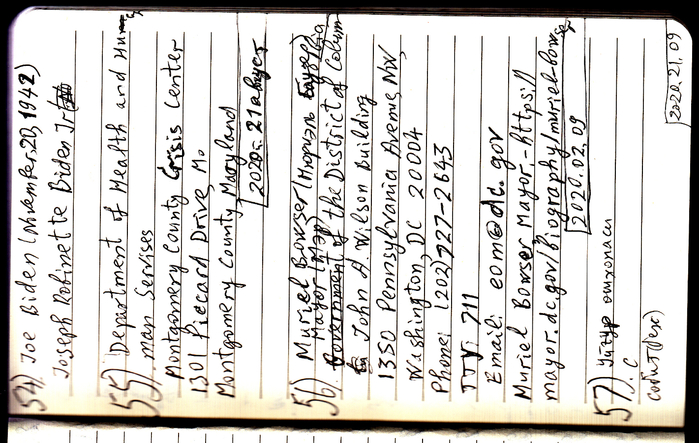 54) Joe Biden (November.20, 1942)
Joseph Robinette Biden Jr
55) Department of Health and Hu
man Servises
Montgomery County Crisis Center
1301 Piccard Drive, Mo
Montgomery County, Maryland
2020. 21 август
56) Muriel Bowser (Мориэл
Mayor (Мэр)
Government of the District of Colum
John A. Wilson Building
1350 Pennsylvania Avenue, NW,
Washington, DC 20004
Phone: (202) 727-2643
TTY: 711
Email: eom@dc.gov
Muriel Bowser Mayor - https://
mayor.dc.gov/biography/muriel-bowse
2020.02.09
57)
С
2020.21.09